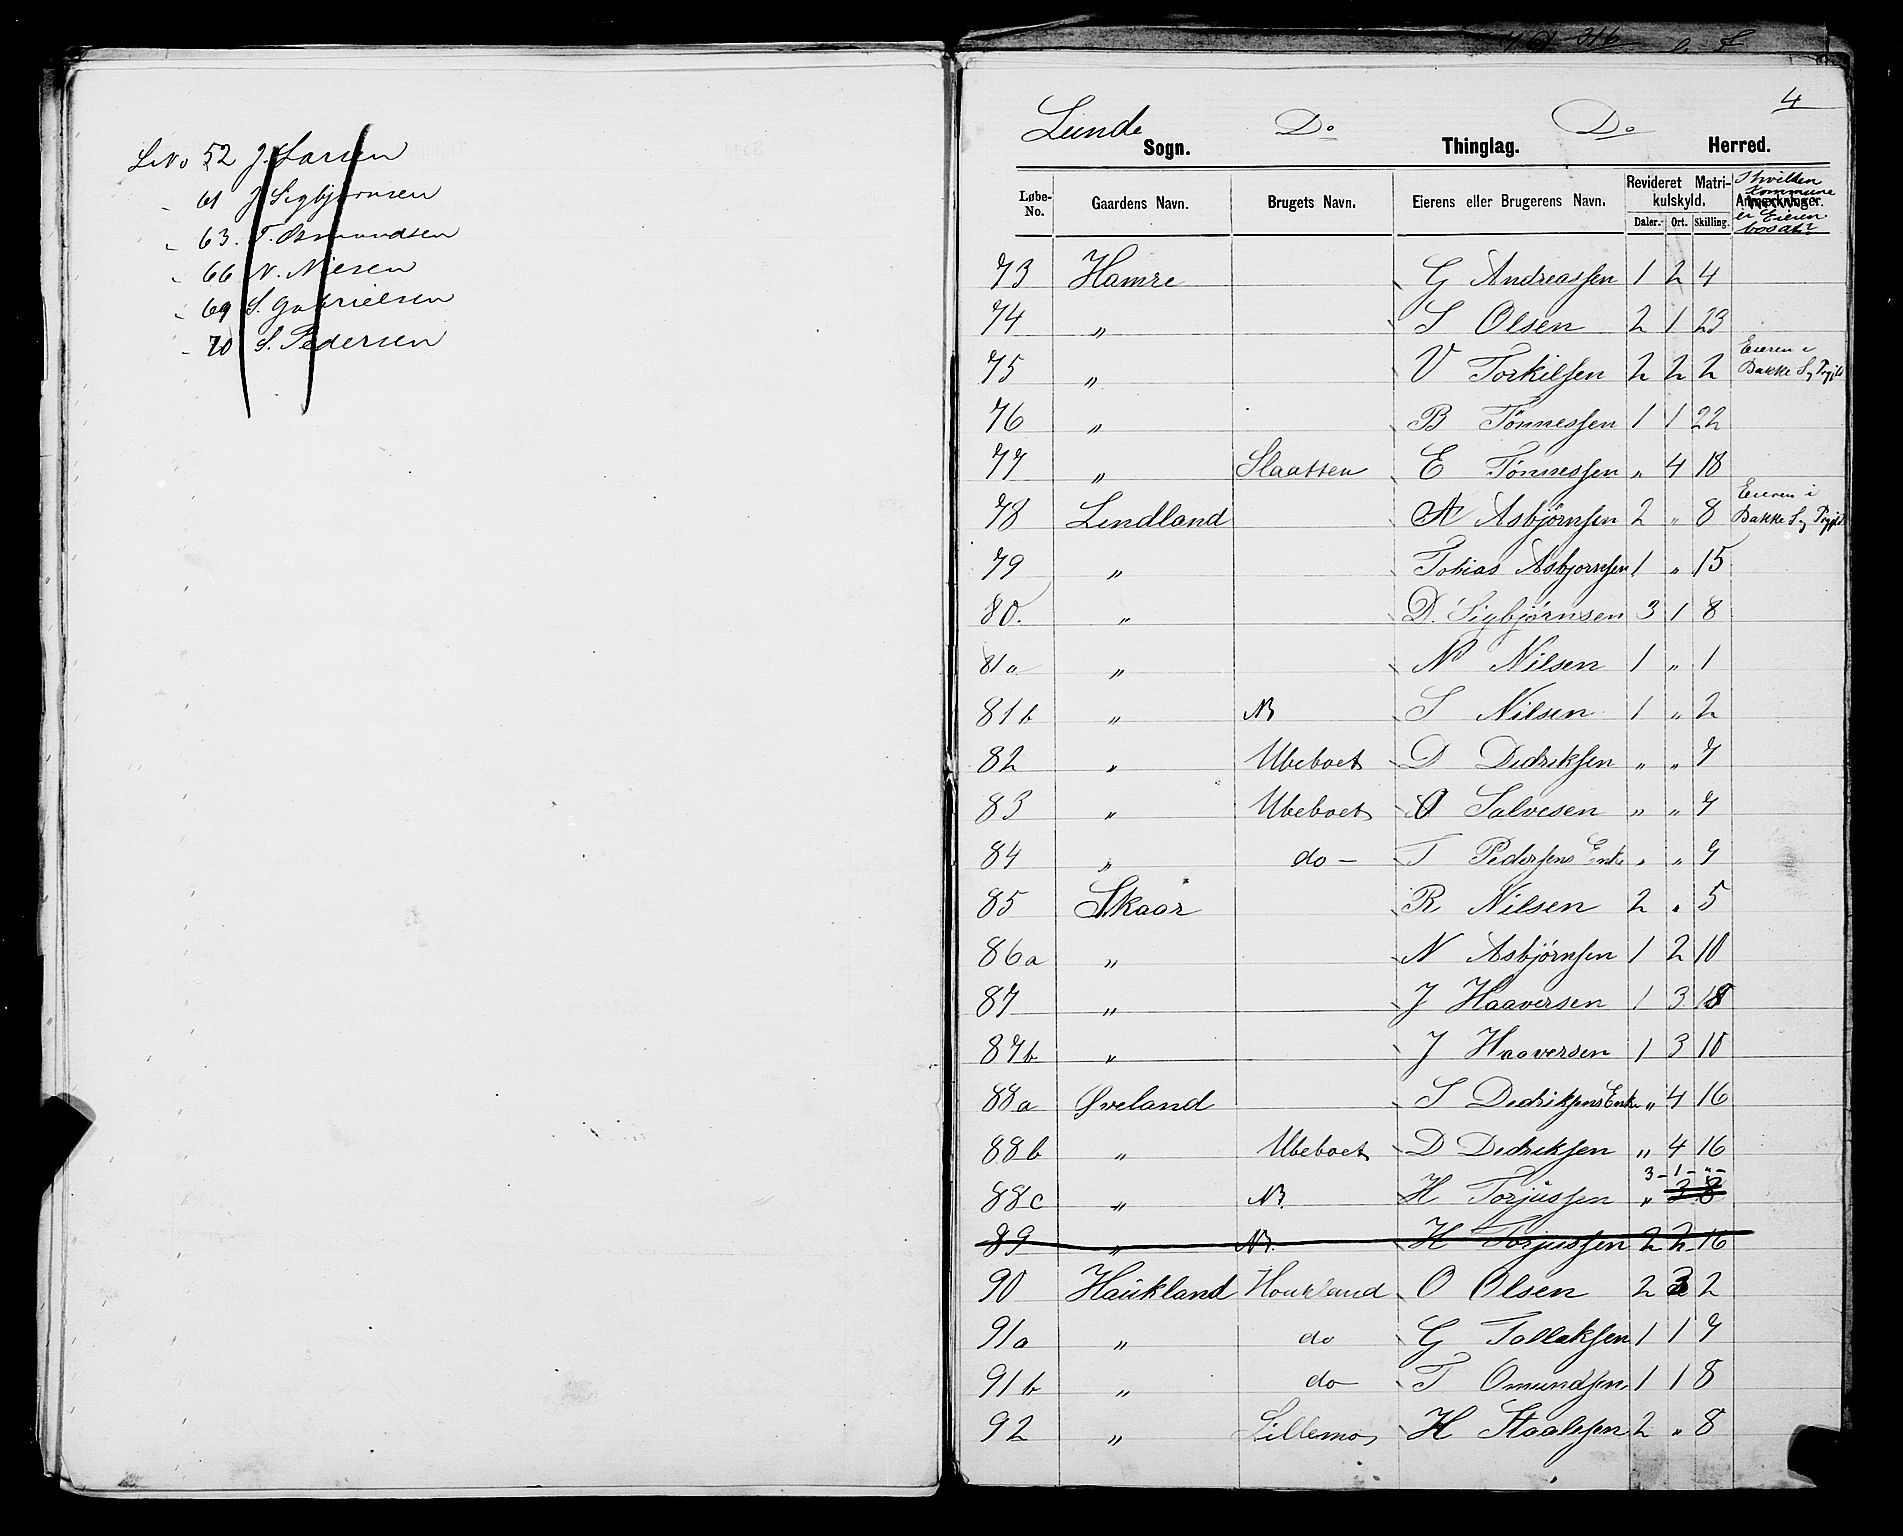 LNo 52 J. Larsen
" 61 J Sigbjørnsen
" 63. T. Osmundsen
" 66 N. Nilsen
" 69 S. Gabrielsen
" 70 S. Pedersen
316
4
Lunde Sogn. Do Thinglag. Do Herred.
Løbe-No. Gaardens Navn. Brugets Navn. Eierens eller Brugerens Navn. Revideret Matrikulskyld. Daler. Ort. Skilling. Anmærkninger. I hvilken Kommune er Eieren bosat?
73 Hamre G Andreassen 1 2 4
74 " S Olsen 2 1 23
75 " V Torkilsen 2 2 2 Eieren i Bakke Sogn
76 " B Tönnessen 1 1 22
77 " Slaatten E Tönnessen " 4 18
78 Lindland A Asbjørnsen 2 " 8 Eieren i Bakke Sogn
79 " Tobias Asbjørnsen 1 " 15
80. " D. Sigbjørnsen 3 1 8
81a " N Nilsen 1 " 1
81b " NB S Nilsen 1 " 2
82 " Ubeboet D Didriksen " " 7
83 " Ubeboet O Salvesen " " 7
84 " do - T Pedersens Enke " " 7
85 Skaar R Nilsen 2 " 5
86a " N Asbjørnsen 1 2 10
87 " J Haaversen 1 3 18
87b " J Haaversen 1 3 10
88a Øveland S Dedriksens Enke " 4 16
88b " Ubeboet D Dedriksen " 4 16
3 - 1 - " -
88c " NB. H Torjussen " 3 8
89 " NB. H Torjussen 2 2 16
90 Haukland Haukland O Olsen 2 3 2
91a " do G Tollaksen 1 1 7
91b " do T Omundsen 1 1 8
92 " Lillemo H Staalesen 2 " 8